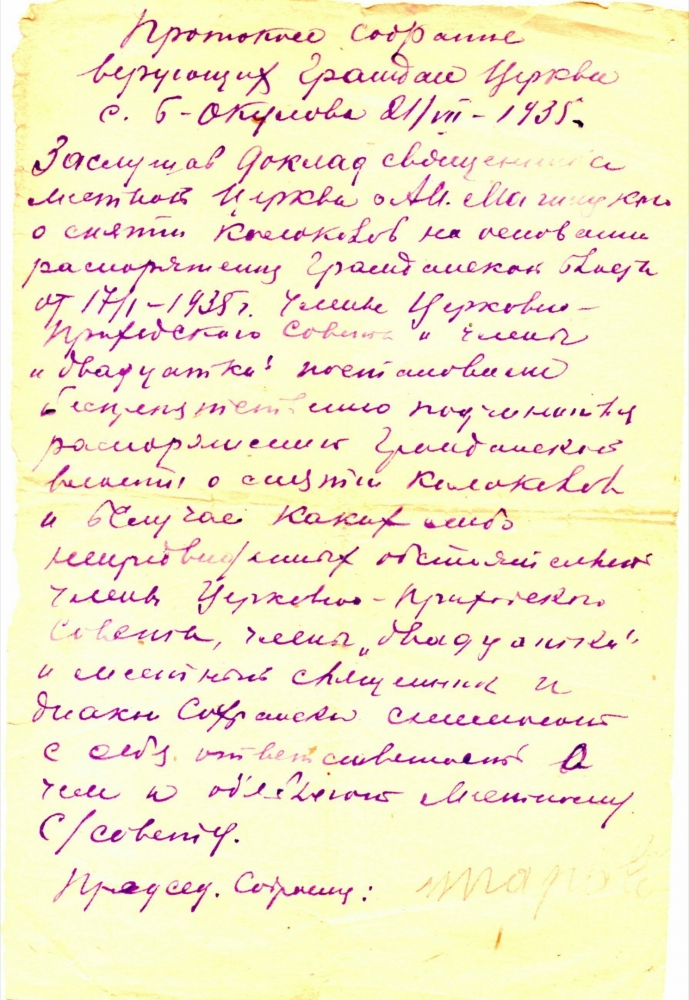 Протокол собрание
верующих Граждан Церкви
с. Б-Окулова 21/VII-1935.
Заслушав доклад священника
местной Церкви о АН.
о снятии колоколов на основании
распоряжения Гражданской Власти
от 17/I-1935г. члены Церковно-
Приходского Совета и члены
и „двадцатки" постановили
беспрепятственно подчиниться
распоряжению Гражданской
власти о снятии колоколов
и в случае каких либо
непредвиденных обстоятельств
члены Церковно-Приходского
Совета, члены „двадцатки"
и местный священник и
диакон снимают
с себя ответственность О
чем и объявляют местному
С/совету.
Председ. Собрания: